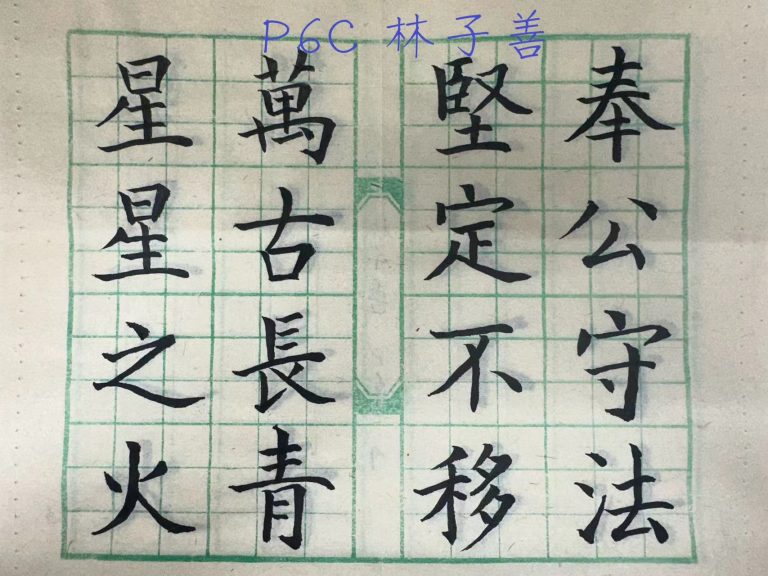 P6C 林子善
奉公守法
堅定不移
萬古長青
星星之火